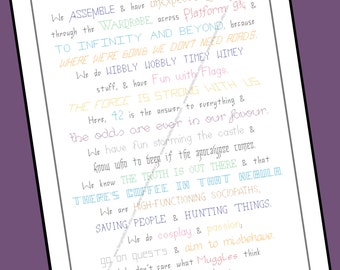 We ASSEMBLE & have
through the WARDROBE, across Platform 9¾ &
TO INFINITY AND BEYOND, because
WHERE WE'RE GOING WE DON'T NEED ROADS.
We do WIBBLY WOBBLY TIMEY WIMEY
stuff, & have Fun with Flags.
THE FORCE IS STRONG WITH US
Here, 42 is the answer to everything &
the odds are ever in our favour.
We have fun storming the castle &
know who to beep if the apocalypse comes
We know THE TRUTH IS OUT THERE & that
THERE'S COFFEE IN THAT NEBULA
We are HIGH-FUNCTIONING SOCIOPATHS,
SAVING PEOPLE & HUNTING THINGS.
We do cosplay, & passion,
go on QUESTS & aim to misbehave.
We don't care what Muggles think